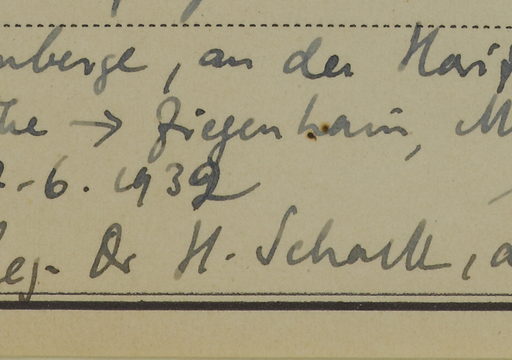 nberge, an der Horiz
the → Ziegenhain, M
-6.1932
leg. Dr H. Schack, a